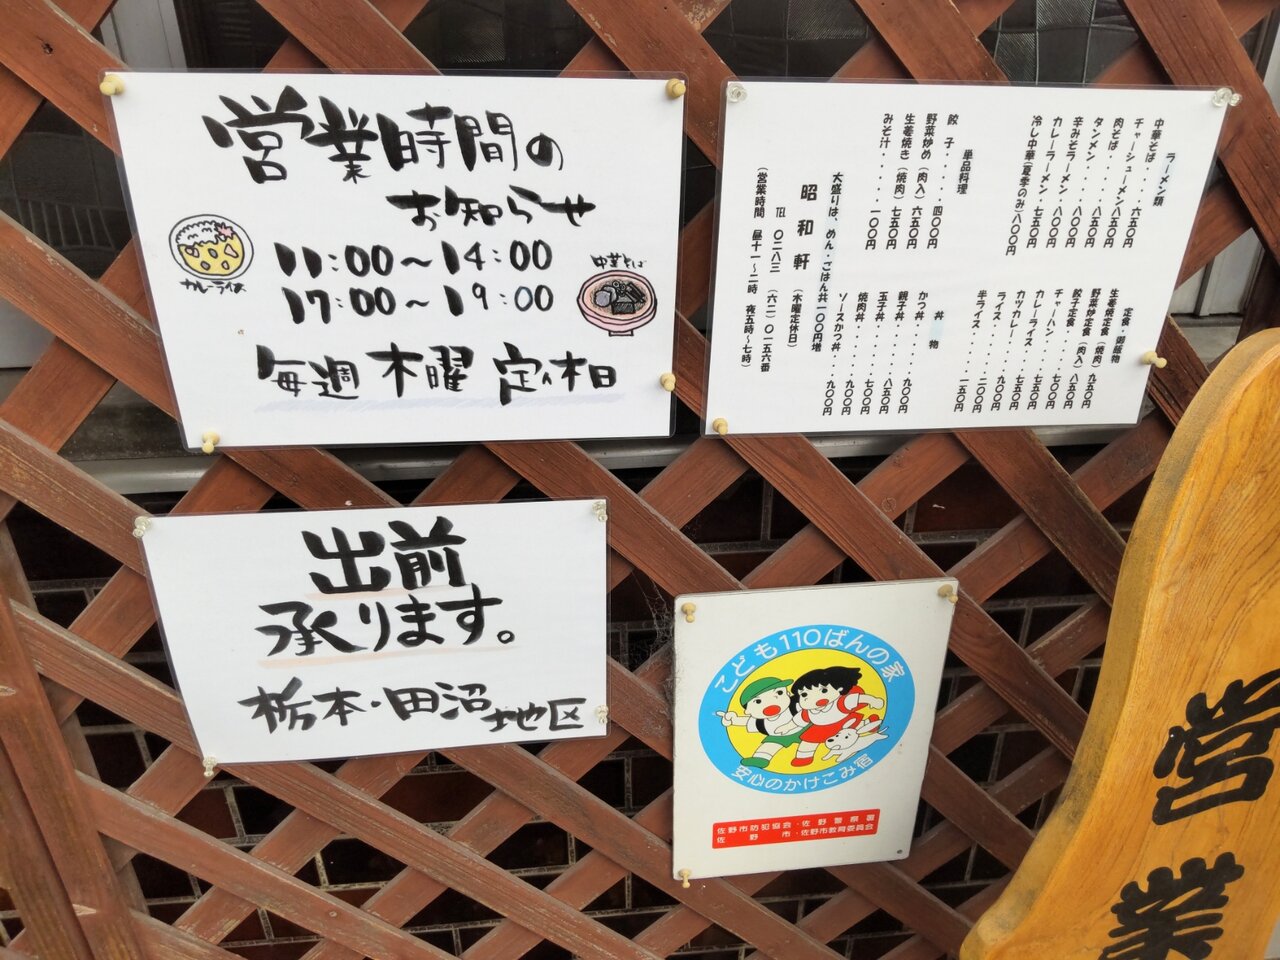 営業時間の
お知らせ
11:00～14:00
17:00～19:00
毎週 木曜 定休日
カレーライス
中華そば
ラーメン類
中華そば・・・・・六五〇円
チャーシューメン八五〇円
肉そば・・・・・・八五〇円
タンメン・・・・・八五〇円
辛みそラーメン・・八〇〇円
カレーラーメン・・七五〇円
冷し中華(夏季のみ)八〇〇円
単品料理
餃子・・・・・・四〇〇円
野菜炒め(肉入)六五〇円
生姜焼き(焼肉)七五〇円
みそ汁・・・・・一〇〇円
定食・御飯物
生姜焼定食(焼肉)九五〇円
野菜炒定食(肉入)八五〇円
餃子定食・・・・・七〇〇円
チャーハン・・・・七五〇円
カレーライス・・・七五〇円
カツカレー・・・・九〇〇円
ライス・・・・・・二〇〇円
半ライス・・・・・一五〇円
丼物
かつ丼・・・・・・九〇〇円
親子丼・・・・・・八五〇円
玉子丼・・・・・・七〇〇円
焼肉丼・・・・・・九〇〇円
ソースかつ丼・・・九〇〇円
大盛りは、めん・ごはん共一〇〇円増
昭和軒 (木曜定休日)
TEL 〇二八三(六二)〇一五六番
(営業時間 昼十一～二時 夜五時～七時)
出前
承ります。
栃本・田沼地区
こども110ばんの家
安心のかけこみ宿
佐野市防犯協会・佐野警察署
佐野市・佐野市教育委員会
営業